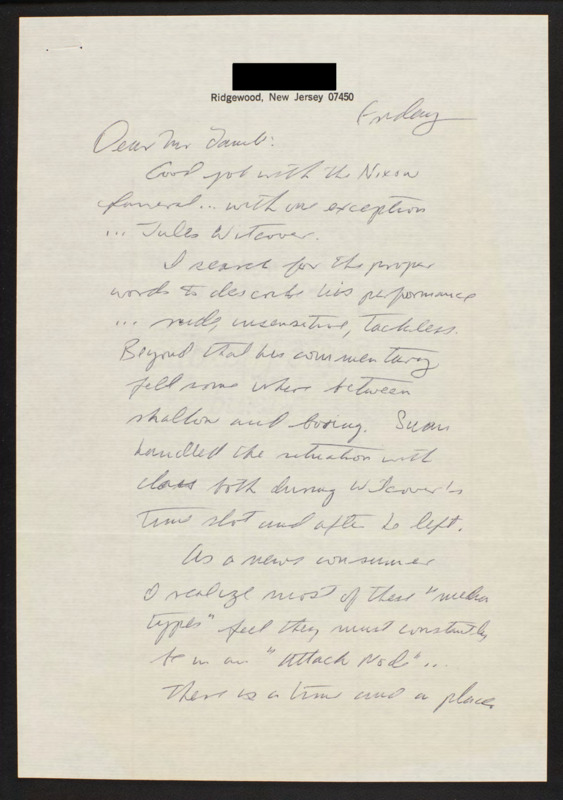 Ridgewood, New Jersey 07450
Friday
Dear Mr Lamb:
Good job with the Nixon
funeral... with one exception
... Jules Witcover.
I search for the proper
words to describe his performance
... rude, insensitive, tackless.
Beyond that his commentary
fell some where between
shallow and boring. Susan
handled the situation with
class both during Witcover's
time slot and after he left.
As a news consumer
I realize most of these "media
types" feel they must constantly
be in an "Attack Mode"...
There is a time and a place